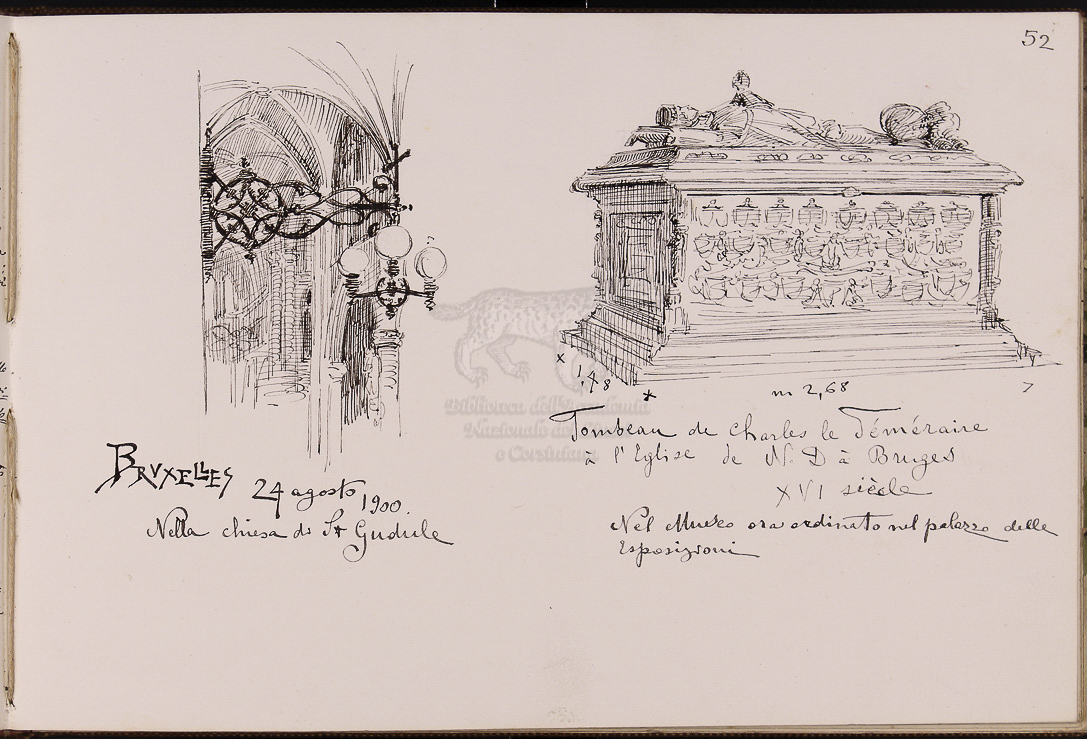 52
BRVXELLES 24 agosto 1900.
Nella chiesa di St Gudule
1,48
m 2,68
Tombeau de Charles le Téméraire
à l'Eglise de N. D à Bruges
XVI siècle
Nel Museo ora ordinato nel palazzo delle
Esposizioni
Biblioteca dell'Accademia
Nazionale dei Lincei
e Corsiniana